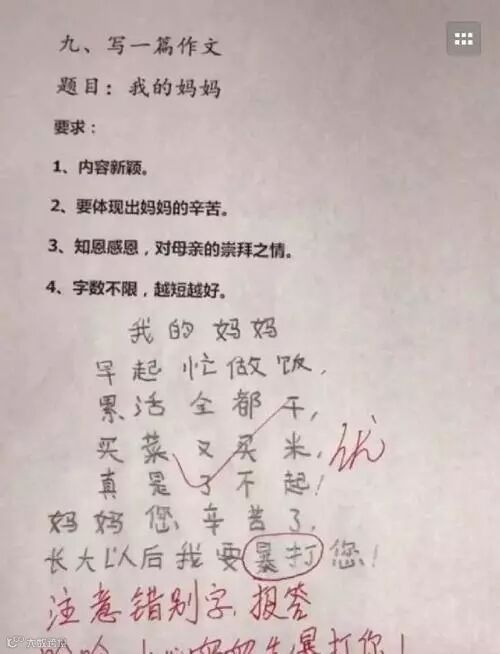 九、写一篇作文
题目：我的妈妈
要求：
1、内容新颖。
2、要体现出妈妈的辛苦。
3、知恩感恩，对母亲的崇拜之情。
4、字数不限，越短越好。
我的妈妈
早起忙做饭，
累活全都干，
买菜又买米，
真是了不起！
优
妈妈您辛苦了，
长大以人后我要暴打您！
注意错别字，报答
妈妈先暴打你！